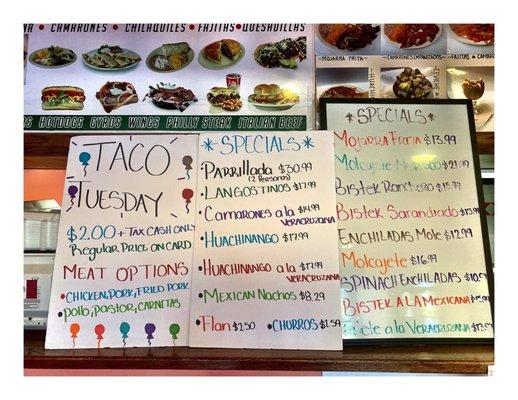 CAMARONES • CHILAQUILES • FAJITAS • QUESADILLAS
HOTDOGS GYROS WINGS PHILLY STEAK ITALIAN BEEF
TACO
TUESDAY
$2.00 + TAX CASH ONLY
REGULAR PRICE ON CARD
MEAT OPTIONS
• CHICKEN, PORK, FRIED PORK
• POLLO, PASTOR, CARNITAS
*SPECIALS*
PARRILLADA $30.99
(2 PERSONAS)
• LANGOSTINOS $17.99
• CAMARONES A LA $14.99
VERACRUZANA
• HUACHINANGO $17.99
• HUACHINANGO A LA $17.99
VERACRUZANA
• MEXICAN NACHOS $8.29
• FLAN $2.50 • CHURROS $1.59
*SPECIALS*
MOJARRA FRITA $13.99
MOLCAJETE MARISCO $21.99
BISTEK RANCHERO $15.99
BISTEK SARANDIADO $13.99
ENCHILADAS MOLE $12.99
MOLCAJETE $16.99
SPINACH ENCHILADAS $10.99
BISTEK A LA MEXICANA $15.99
A LA VERACRUZANA $13.99